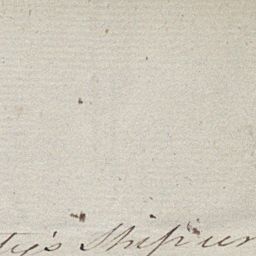 ty's Ship un